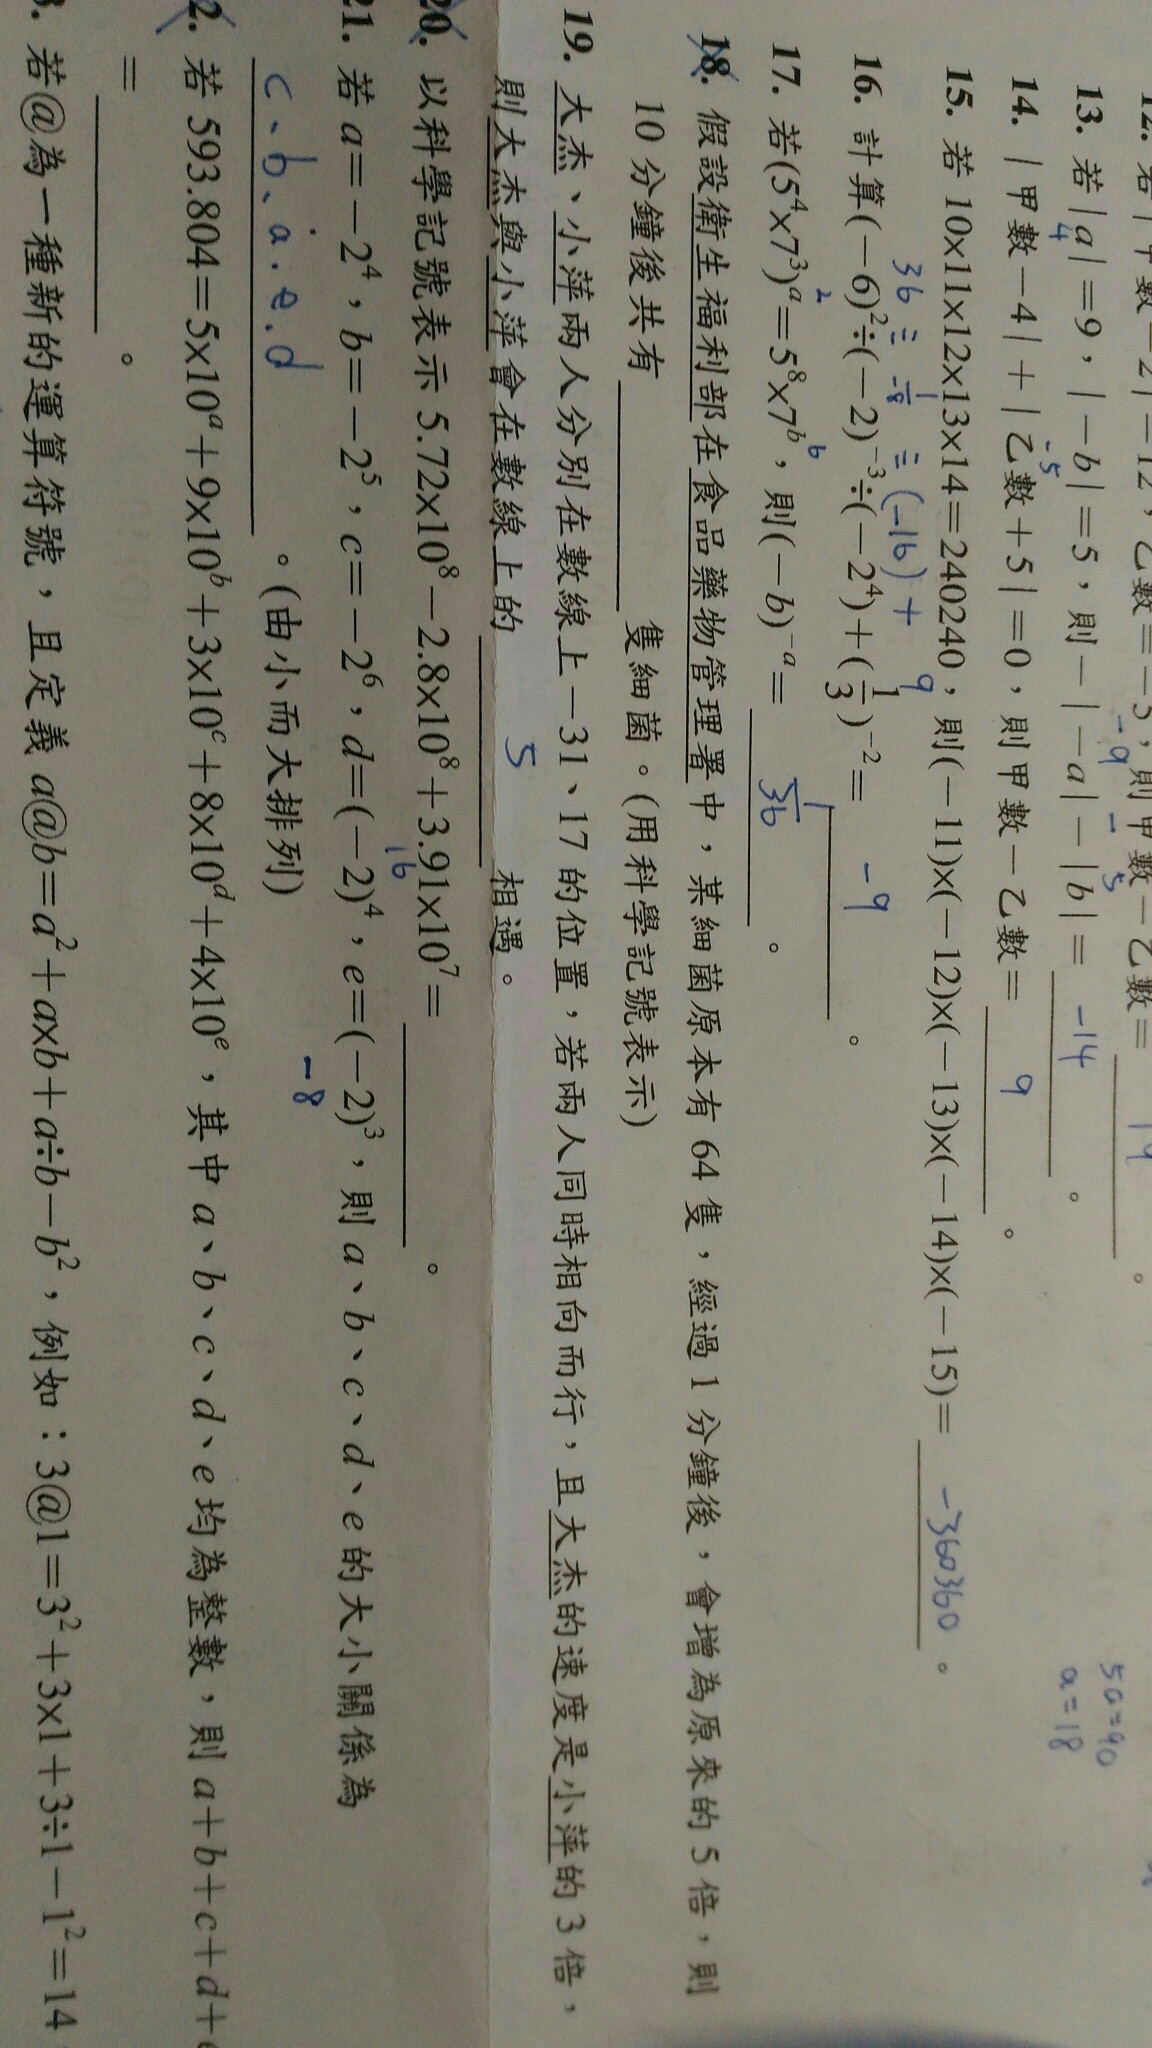 12. 若｜甲數－2｜＝12，乙數＝－5，則甲數－乙數＝
19
13. 若｜a｜＝9，｜－b｜＝5，則－｜－a｜－｜b｜＝ －14 。
－9 － 5
14. ｜甲數－4｜＋｜乙數＋5｜＝0，則甲數－乙數＝ 9 。
4 －5
15. 若 10×11×12×13×14＝240240，則(－11)×(－12)×(－13)×(－14)×(－15)＝ －360360 。
5a=90
a=18
16. 計算(－6)²÷(－2)⁻³÷(－2⁴)＋(1/3)⁻²＝ －9 。
36 ÷ 1/-8 ÷ (-16) + 9
17. 若(5⁴×7³)ᵃ＝5⁸×7ᵇ，則(－b)⁻ᵃ＝ 1/36 。
2 6
18. 假設衛生福利部在食品藥物管理署中，某細菌原本有 64 隻，經過 1 分鐘後，會增為原來的 5 倍，則
10 分鐘後共有 隻細菌。(用科學記號表示)
19. 大杰、小萍兩人分別在數線上－31、17 的位置，若兩人同時相向而行，且大杰的速度是小萍的 3 倍，
則大杰與小萍會在數線上的 5 相遇。
20. 以科學記號表示 5.72×10⁸－2.8×10⁸＋3.91×10⁷＝ 。
21. 若 a＝－2⁴，b＝－2⁵，c＝－2⁶，d＝(－2)⁴，e＝(－2)³，則 a、b、c、d、e 的大小關係為
16 －8
c、b、a、e、d 。(由小而大排列)
2. 若 593.804＝5×10ᵃ＋9×10ᵇ＋3×10ᶜ＋8×10ᵈ＋4×10ᵉ，其中 a、b、c、d、e 均為整數，則 a＋b＋c＋d＋e
＝ 。
3. 若@為一種新的運算符號，且定義 a@b＝a²＋a×b＋a÷b－b²，例如：3@1＝3²＋3×1＋3÷1－1²＝14